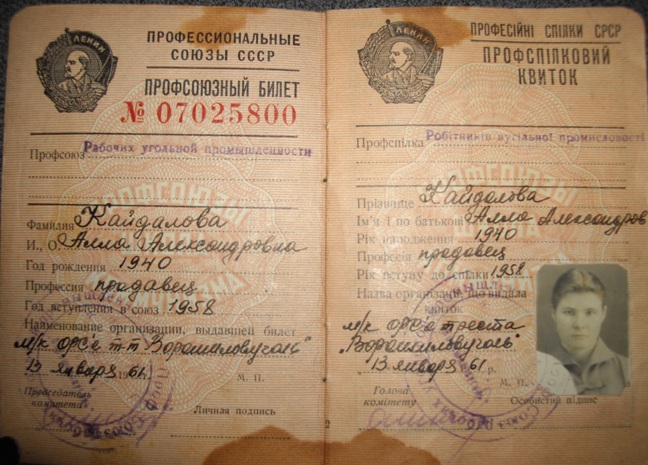 ЛЕНИН
ПРОФЕССИОНАЛЬНЫЕ
СОЮЗЫ СССР
ПРОФСОЮЗНЫЙ БИЛЕТ
№ 07025800
Профсоюз Рабочих угольной промышленности
Фамилия Кайдалова
И., О. Алла Александровна
Год рождения 1940
Профессия продавец
Год вступления в союз 1958
Наименование организации, выдавшей билет
м/к ОРС'а т-т "Ворошиловуголь"
13 января 1961
М. П.
Председатель
комитета
Личная подпись
ЛЕНИН
ПРОФЕСІЙНІ СПІЛКИ СРСР
ПРОФСПІЛКОВИЙ
КВИТОК
Профспілка Робітників вугільної промисловості
Прізвище Кайдалова
Ім'я і по батькові Алла Александров
Рік народження 1940
Професія продавец
Рік вступу до спілки 1958
Назва організації, що видала
квиток
м/к ОРС'а треста
"Ворошиловуголь"
13 января 61 р.
М. П.
Голова
комітету
Особистий підпис
2